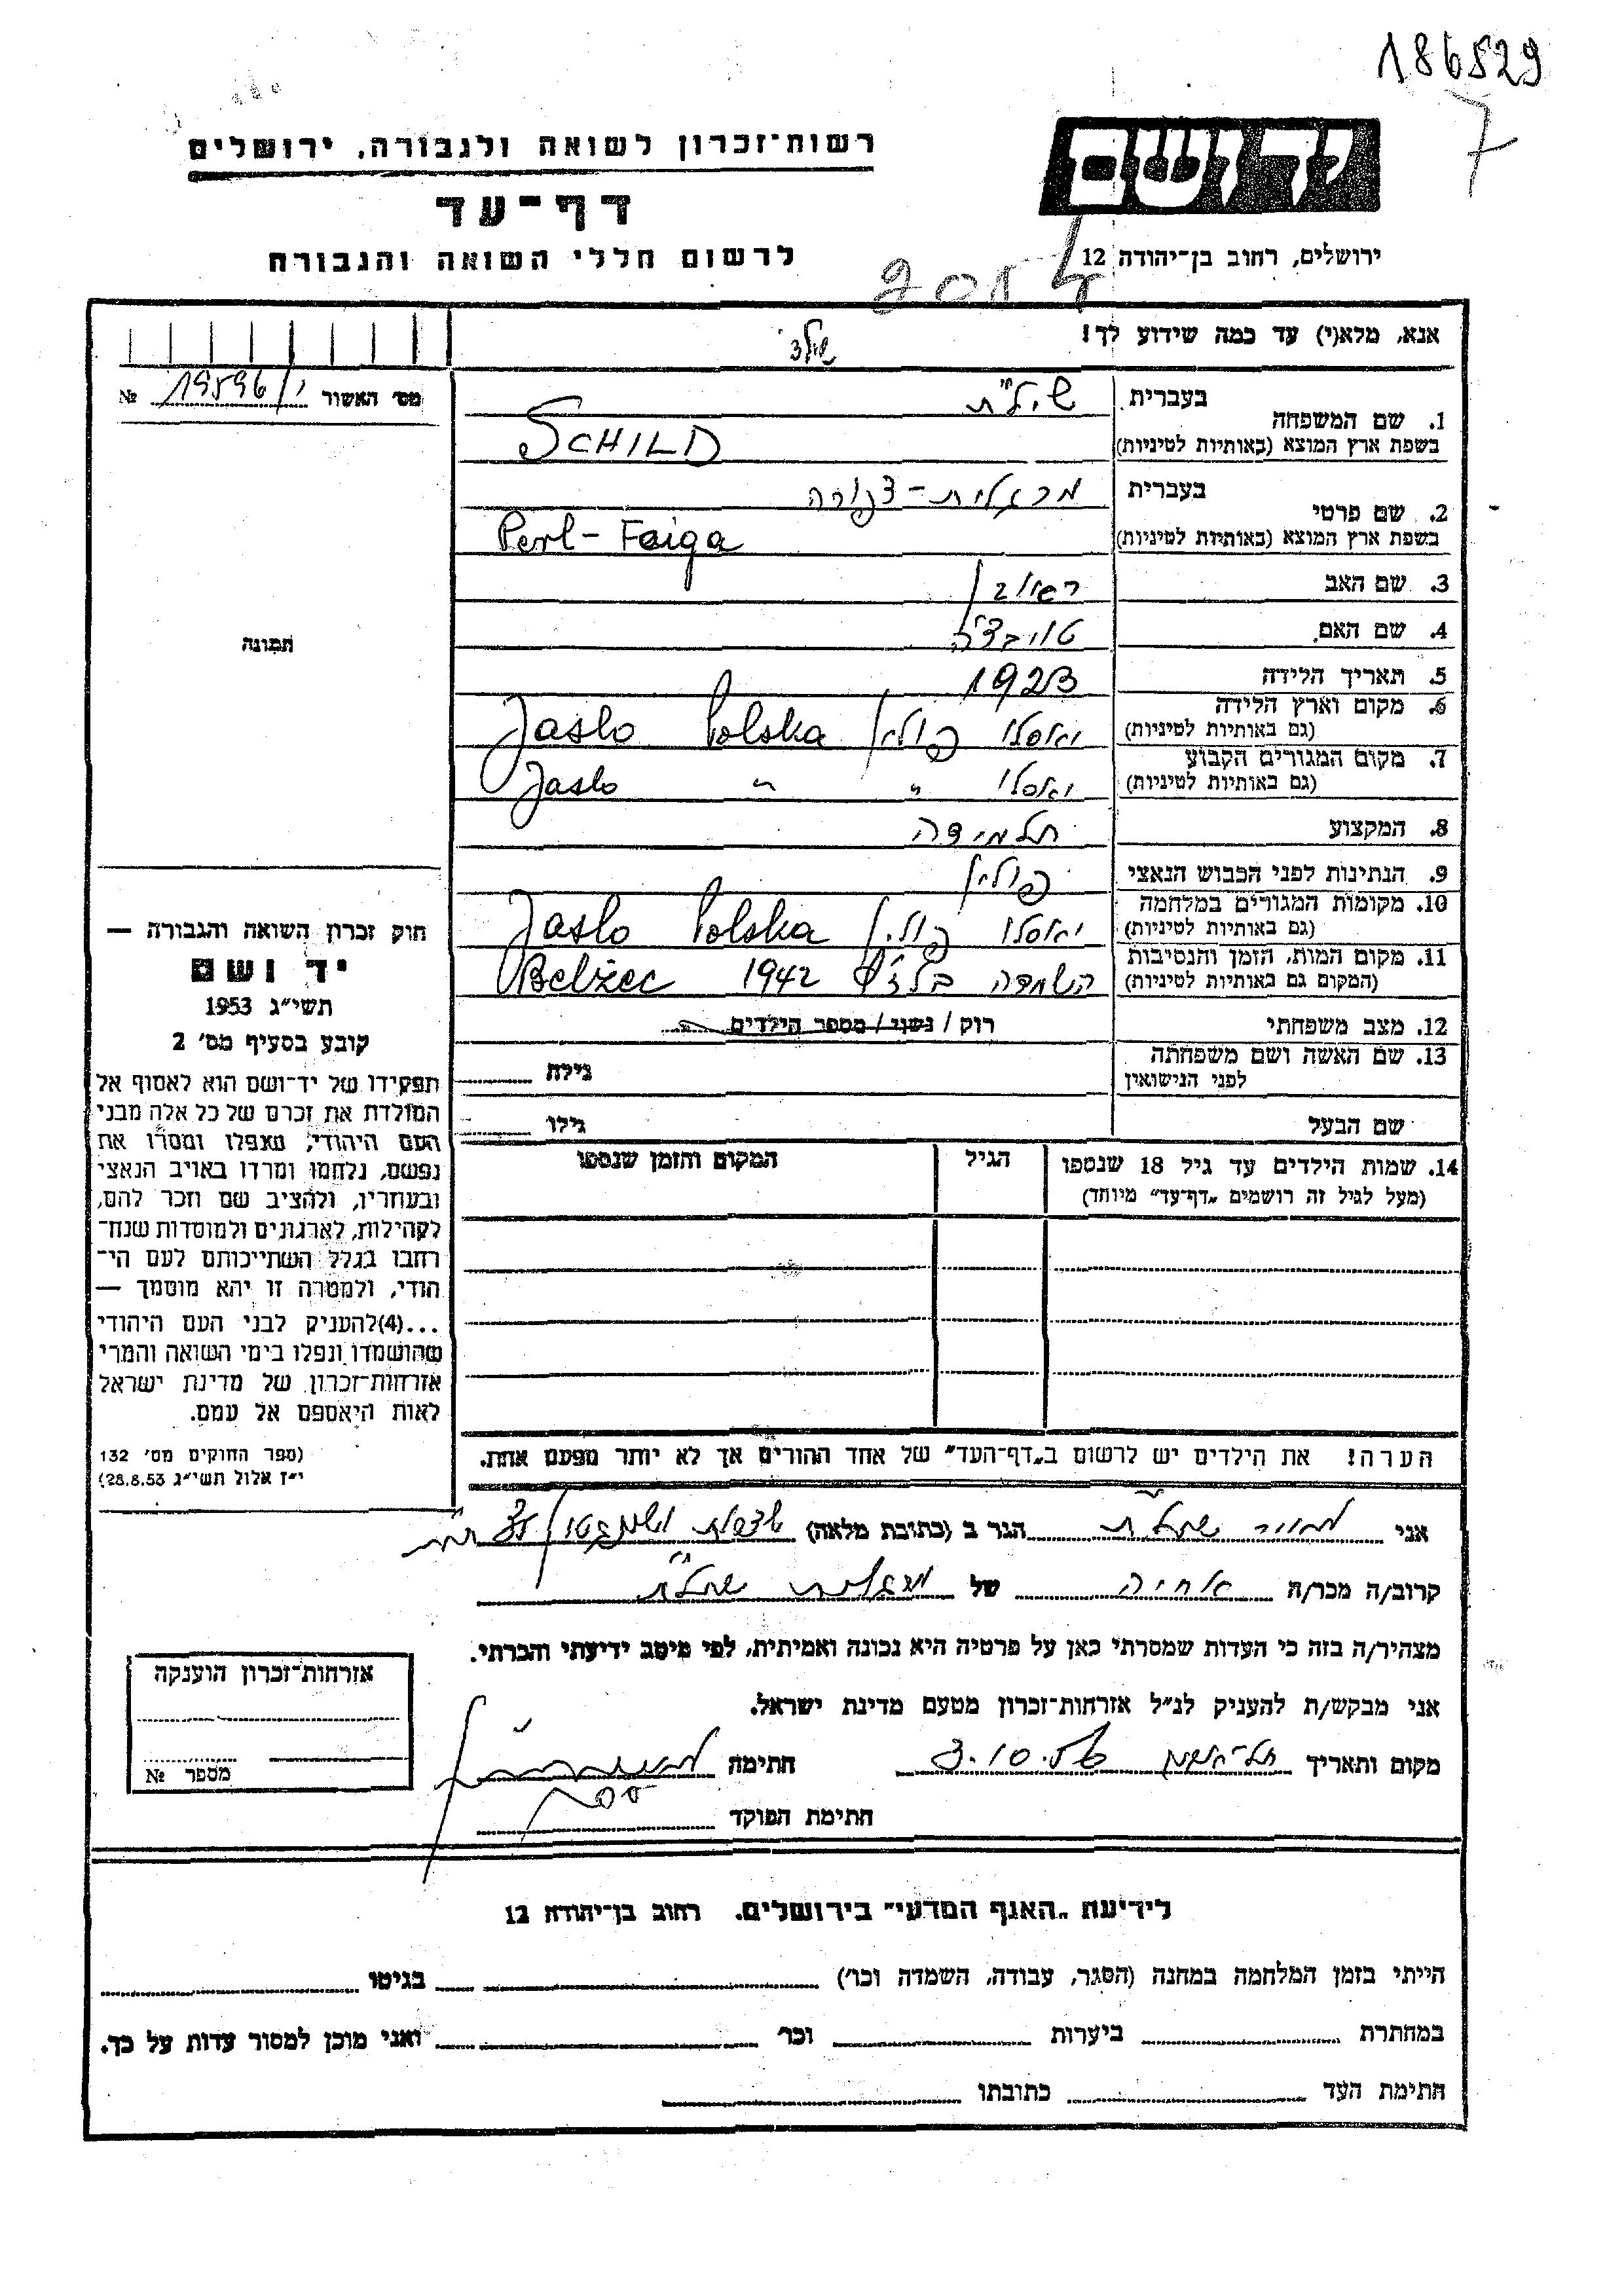 186529
7
רשות־זכרון לשואה ולגבורה, ירושלים
דף־עד
לרשום חללי השואה והגבורה
ידושם
ירושלים, רחוב בן־יהודה 12
אנא, מלא(י) עד כמה שידוע לך!
שילד
מס׳ האשור 19596/י №
1. שם המשפחה
בעברית
בשפת ארץ המוצא (באותיות לטיניות)
SCHILD
2. שם פרטי
בעברית מרגלית - צפורה
בשפת ארץ המוצא (באותיות לטיניות)
Perl - Faiga
3. שם האב ראובן
4. שם האם
5. תאריך הלידה 1923
6. מקום וארץ הלידה
(גם באותיות לטיניות)
יאסלו פולין Jaslo Polska
7. מקום המגורים הקבוע
(גם באותיות לטיניות)
יאסלו " Jaslo "
8. המקצוע תלמידה
9. הנתינות לפני הכבוש הנאצי פולין
10. מקומות המגורים במלחמה
(גם באותיות לטיניות)
יאסלו פולין Jaslo Polska
11. מקום המות, הזמן והנסיבות
(המקום גם באותיות לטיניות)
השמדה 1942 Belżec
12. מצב משפחתי
רוק / נשוי / מספר הילדים
13. שם האשה ושם משפחתה
לפני הנישואין
גילה
שם הבעל
גילו
14. שמות הילדים עד גיל 18 שנספו
(מעל לגיל זה רושמים „דף־עד״ מיוחד)
הגיל
המקום והזמן שנספו
הערה! את הילדים יש לרשום ב„דף־העד״ של אחד ההורים אך לא יותר מפעם אחת.
תמונה
חוק זכרון השואה והגבורה —
יד ושם
תשי״ג 1953
קובע בסעיף מס׳ 2
תפקידו של יד־ושם הוא לאסוף אל
המולדת את זכרם של כל אלה מבני
העם היהודי, שנפלו ומסרו את
נפשם, נלחמו ומרדו באויב הנאצי
ובעוזריו, ולהציב שם וזכר להם,
לקהילות, לארגונים ולמוסדות שנח־
רבו בגלל השתייכותם לעם הי־
הודי, ולמטרה זו יהא מוסמך —
...(4)להעניק לבני העם היהודי
שהושמדו ונפלו בימי השואה והמרי
אזרחות־זכרון של מדינת ישראל
לאות היאספם אל עמם.
(ספר החוקים מס׳ 132
י״ז אלול תשי״ג 28.8.53)
אני
הגר ב (כתובת מלאה)
קרוב/ה מכר/ה של מרגלית
מצהיר/ה בזה כי העדות שמסרתי כאן על פרטיה היא נכונה ואמיתית, לפי מיטב ידיעתי והכרתי.
אני מבקש/ת להעניק לנ״ל אזרחות־זכרון מטעם מדינת ישראל.
מקום ותאריך 3.10.56 חתימה
חתימת הפוקד
אזרחות־זכרון הוענקה
מספר №
לידיעת „האגף המדעי״ בירושלים. רחוב בן־יהודה 12
הייתי בזמן המלחמה במחנה (הסגר, עבודה, השמדה וכו׳) בגיטו
במחתרת ביערות וכו׳ ואני מוכן למסור עדות על כך.
חתימת העד כתובתו